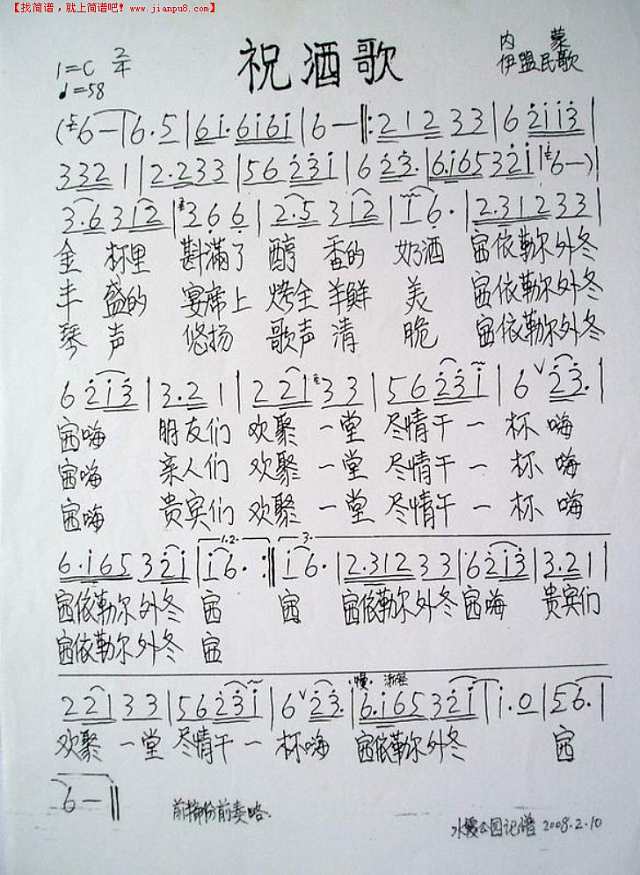 【找简谱，就上简谱吧! www.jianpu8.com】
祝酒歌
内 蒙
伊盟民歌
1=C 2/4
♩=58
(6 — | 6·5 | 6i·6i6i | 6 — |: 2 1 2 3 3 | 6 2 i i 3 |
3 3 2 1 | 2·2 3 3 | 5 6 2 3 i | 6 2 3· | 6·i 6 5 3 2 i | 6 — ) |
3·6 3 i 2 | 3·6 6 | 2·5 3 i 2 | i 6· | 2·3 1 2 3 3 |
金 杯里 斟满了 醇 香的 奶酒 窅依勒尔外冬
丰 盛的 宴席上 烤全羊鲜 美 窅依勒尔外冬
琴 声 悠扬 歌声清 脆 窅依勒尔外冬
6 2 i 3 | 3·2 1 | 2 2 1 3 3 | 5 6 2 3 i | 6 ∨ 2 3· |
窅嗨 朋友们 欢聚 一堂 尽情干一 杯 嗨
窅嗨 亲人们 欢聚 一堂 尽情干一 杯 嗨
窅嗨 贵宾们 欢聚 一堂 尽情干一 杯 嗨
1.2. 3.
6·i 6 5 3 2 i | i 6· :| i 6· | 2·3 1 2 3 3 | 6 2 i 3 | 3·2 1 |
窅依勒尔外冬 窅 窅 窅依勒尔外冬 窅嗨 贵宾们
窅依勒尔外冬 窅
慢. 渐强
2 2 1 3 3 | 5 6 2 3 i | 6 ∨ 2 3· | 6·i 6 5 3 2 i | i·0 | 5 6· |
欢聚 一堂 尽情干一 杯嗨 窅依勒尔外冬 窅
6 — ‖
前奏略
水 公园记谱 2008.2.10